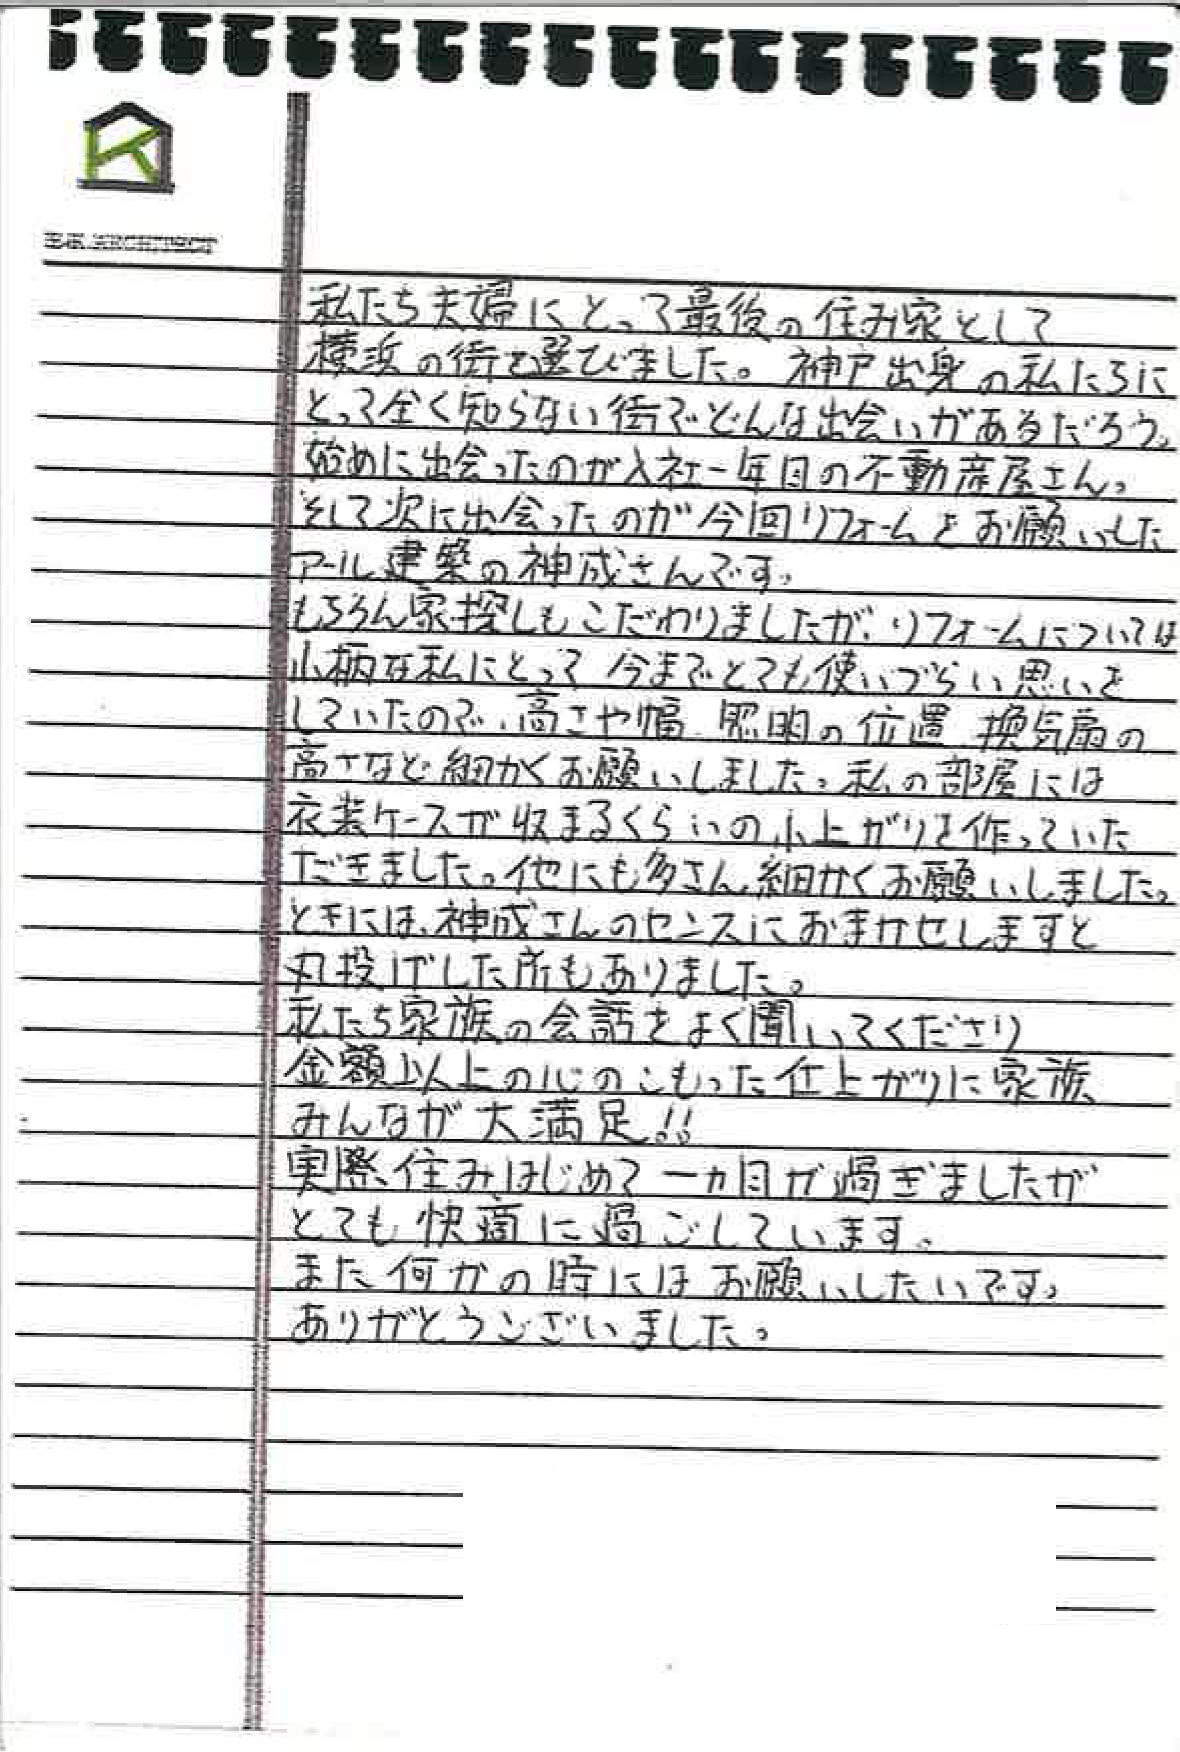 ARCHITECT
私たち夫婦にとって最後の住み家として
横浜の街を選びました。神戸出身の私たちに
とって全く知らない街でどんな出会いがあるだろう。
始めに出会ったのが入社一年目の不動産屋さん。
そして次に出会ったのが今回リフォームをお願いした
アール建築の神成さんです。
もちろん家探しもこだわりましたが、リフォームについては
小柄な私にとって今までとても使いづらい思いを
していたので、高さや幅、照明の位置、換気扇の
高さなど細かくお願いしました。私の部屋には
衣装ケースが収まるくらいの小上がりを作っていた
だきました。他にも多さん細かくお願いしました。
ときには、神成さんのセンスにおまかせしますと
丸投げした所もありました。
私たち家族の会話をよく聞いてくださり
金額以上の心のこもった仕上がりに家族
みんなが大満足!!
実際、住みはじめて一ヵ月が過ぎましたが
とても快適に過ごしています。
また何かの時にはお願いしたいです。
ありがとうございました。